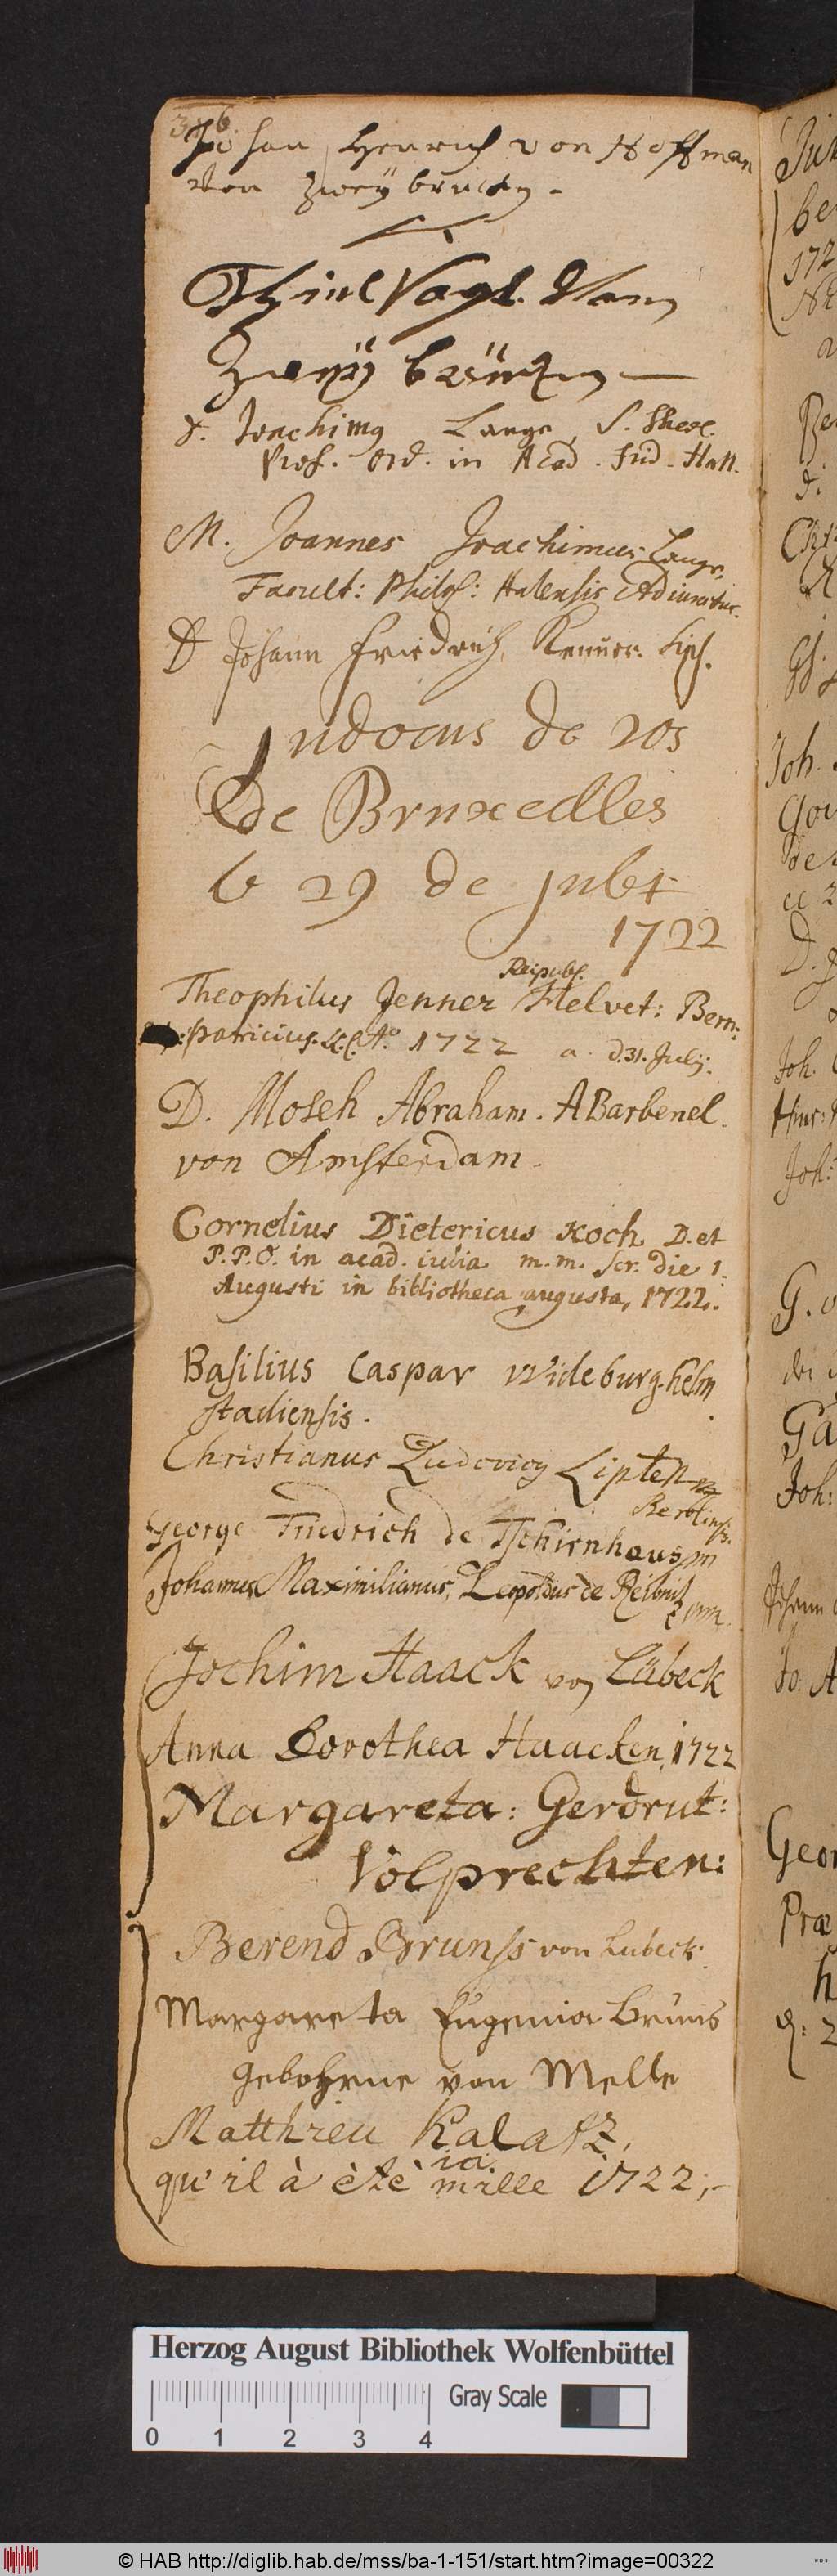 316
Johan Henrich von Hoffman
von Zweÿbrucken.
Vogt Von
Zweÿ brücken
D. Joachimus Lange, S. Theol.
Prof. Ord. in Acad. Frid. Hall.
M. Joannes Joachimus Lange,
Facult: Philos: Halensis Adiunctus.
D Johann Friedrich Lips.
Judocus de ros
de Bruxcelles
29 de
1722
Reipubl.
Theophilus Jenner Helvet: Bern:
patricius. Aº 1722 d. 31. Julÿ.
D. Moseh Abraham. ABarbenel.
von Amsterdam.
Cornelius Dietericus Koch, D. et
P.P.O. in acad. iulia m.m. scr. die 1.
Augusti in bibliotheca augusta, 1722.
Basilius Caspar Wideburg helm
stadiensis.
Christianus Ludovicus Lipten
Berolinensis.
George Friedrich de Tschirnhaus
Johannes Maximilianus, Leopoldus de Reibnitz
Jochim Haack von Lübeck
Anna Dorothea Haacken, 1722
Margareta: Gerdrut:
Volprechten:
Berend Brunss von Lubeck.
Margareta Eugenia Bruns
gebohrne von Melle
Matthieu
ici
qu'il à ètè mille 1722,-
Joh.
Joh.
Joh:
Joh:
Geor
Præ
Herzog August Bibliothek Wolfenbüttel
Gray Scale
0 1 2 3 4
© HAB http://diglib.hab.de/mss/ba-1-151/start.htm?image=00322